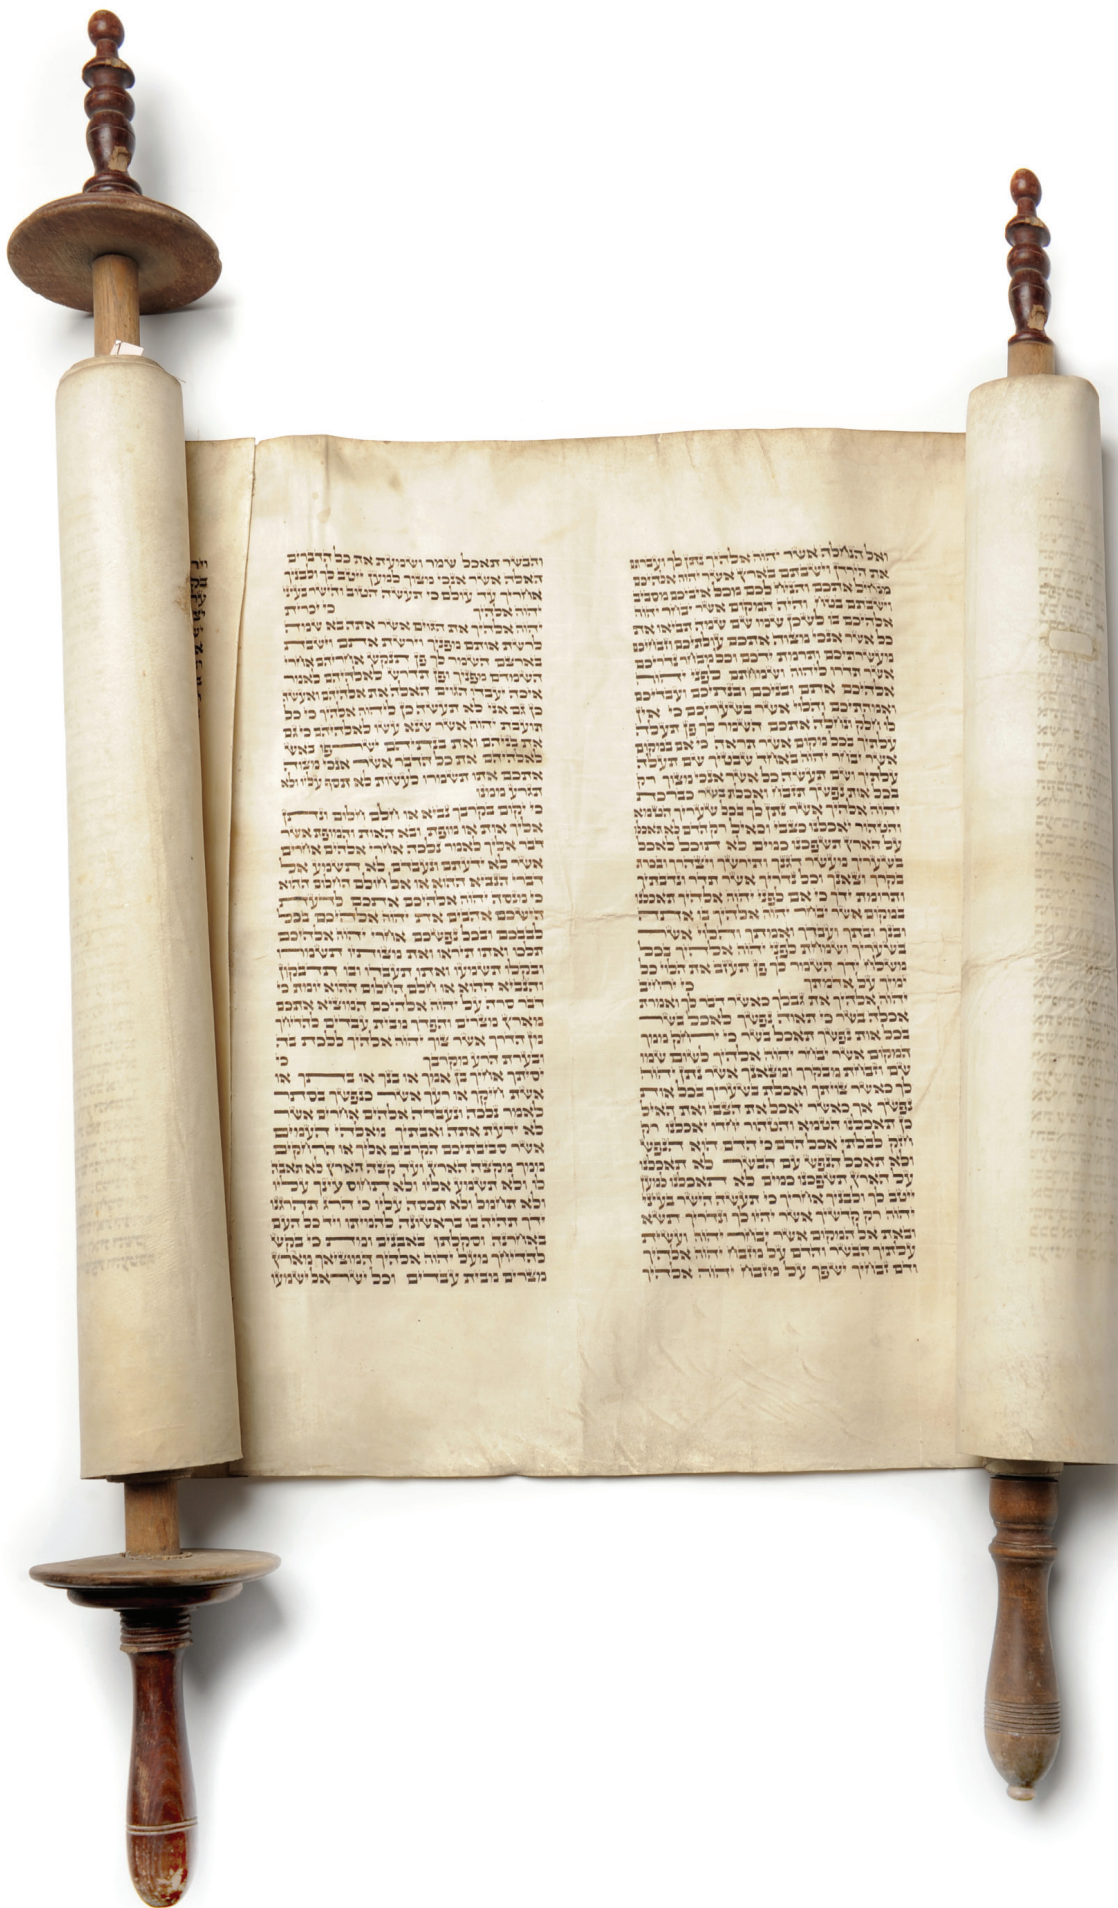 ואל הנחלה אשר יהוה אלהיך נתן לך ועברתם
את הירדן וישבתם בארץ אשר יהוה אלהיכם
מנחיל אתכם והניח לכם מכל איביכם מסביב
וישבתם בטח והיה המקום אשר יבחר יהוה
אלהיכם בו לשכן שמו שם שמה תביאו את
כל אשר אנכי מצוה אתכם עולתיכם וזבחיכם
מעשרתיכם ותרמת ידכם וכל מבחר נדריכם
אשר תדרו ליהוה ושמחתם לפני יהוה
אלהיכם אתם ובניכם ובנתיכם ועבדיכם
ואמהתיכם והלוי אשר בשעריכם כי אין
לו חלק ונחלה אתכם השמר לך פן תעלה
עלתיך בכל מקום אשר תראה כי אם במקום
אשר יבחר יהוה באחד שבטיך שם תעלה
עלתיך ושם תעשה כל אשר אנכי מצוך רק
בכל אות נפשך תזבח ואכלת בשר כברכת
יהוה אלהיך אשר נתן לך בכל שעריך הטמא
והטהור יאכלנו כצבי וכאיל רק הדם לא תאכלו
על הארץ תשפכנו כמים לא תוכל לאכל
בשעריך מעשר דגנך ותירשך ויצהרך ובכרת
בקרך וצאנך וכל נדריך אשר תדר ונדבתיך
ותרומת ידך כי אם לפני יהוה אלהיך תאכלנו
במקום אשר יבחר יהוה אלהיך בו אתה
ובנך ובתך ועבדך ואמתך והלוי אשר
בשעריך ושמחת לפני יהוה אלהיך בכל
משלח ידך השמר לך פן תעזב את הלוי כל
ימיך על אדמתך כי ירחיב
יהוה אלהיך את גבלך כאשר דבר לך ואמרת
אכלה בשר כי תאוה נפשך לאכל בשר
בכל אות נפשך תאכל בשר כי ירחק ממך
המקום אשר יבחר יהוה אלהיך לשום שמו
שם וזבחת מבקרך ומצאנך אשר נתן יהוה
לך כאשר צויתך ואכלת בשעריך בכל אות
נפשך אך כאשר יאכל את הצבי ואת האיל
כן תאכלנו הטמא והטהור יחדו יאכלנו רק
חזק לבלתי אכל הדם כי הדם הוא הנפש
ולא תאכל הנפש עם הבשר לא תאכלנו
על הארץ תשפכנו כמים לא תאכלנו למען
ייטב לך ולבניך אחריך כי תעשה הישר בעיני
יהוה רק קדשיך אשר יהיו לך ונדריך תשא
ובאת אל המקום אשר יבחר יהוה ועשית
עלתיך הבשר והדם על מזבח יהוה אלהיך
ודם זבחיך ישפך על מזבח יהוה אלהיך
והבשר תאכל שמר ושמעת את כל הדברים
האלה אשר אנכי מצוך למען ייטב לך ולבניך
אחריך עד עולם כי תעשה הטוב והישר בעיני
יהוה אלהיך כי יכרית
יהוה אלהיך את הגוים אשר אתה בא שמה
לרשת אותם מפניך וירשת אתם וישבת
בארצם השמר לך פן תנקש אחריהם אחרי
השמדם מפניך ופן תדרש לאלהיהם לאמר
איכה יעבדו הגוים האלה את אלהיהם ואעשה
כן גם אני לא תעשה כן ליהוה אלהיך כי כל
תועבת יהוה אשר שנא עשו לאלהיהם כי גם
את בניהם ואת בנתיהם ישרפו באש
לאלהיהם את כל הדבר אשר אנכי מצוה
אתכם אתו תשמרו לעשות לא תסף עליו ולא
תגרע ממנו
כי יקום בקרבך נביא או חלם חלום ונתן
אליך אות או מופת ובא האות והמופת אשר
דבר אליך לאמר נלכה אחרי אלהים אחרים
אשר לא ידעתם ונעבדם לא תשמע אל
דברי הנביא ההוא או אל חולם החלום ההוא
כי מנסה יהוה אלהיכם אתכם לדעת
הישכם אהבים את יהוה אלהיכם בכל
לבבכם ובכל נפשכם אחרי יהוה אלהיכם
תלכו ואתו תיראו ואת מצותיו תשמרו
ובקלו תשמעו ואתו תעבדו ובו תדבקון
והנביא ההוא או חלם החלום ההוא יומת כי
דבר סרה על יהוה אלהיכם המוציא אתכם
מארץ מצרים והפדך מבית עבדים להדיחך
מן הדרך אשר צוך יהוה אלהיך ללכת בה
ובערת הרע מקרבך כי
יסיתך אחיך בן אמך או בנך או בתך או
אשת חיקך או רעך אשר כנפשך בסתר
לאמר נלכה ונעבדה אלהים אחרים אשר
לא ידעת אתה ואבתיך מאלהי העמים
אשר סביבתיכם הקרבים אליך או הרחקים
ממך מקצה הארץ ועד קצה הארץ לא תאבה
לו ולא תשמע אליו ולא תחוס עינך עליו
ולא תחמל ולא תכסה עליו כי הרג תהרגנו
ידך תהיה בו בראשונה להמיתו ויד כל העם
באחרנה וסקלתו באבנים ומת כי בקש
להדיחך מעל יהוה אלהיך המוציאך מארץ
מצרים מבית עבדים וכל ישראל ישמעו